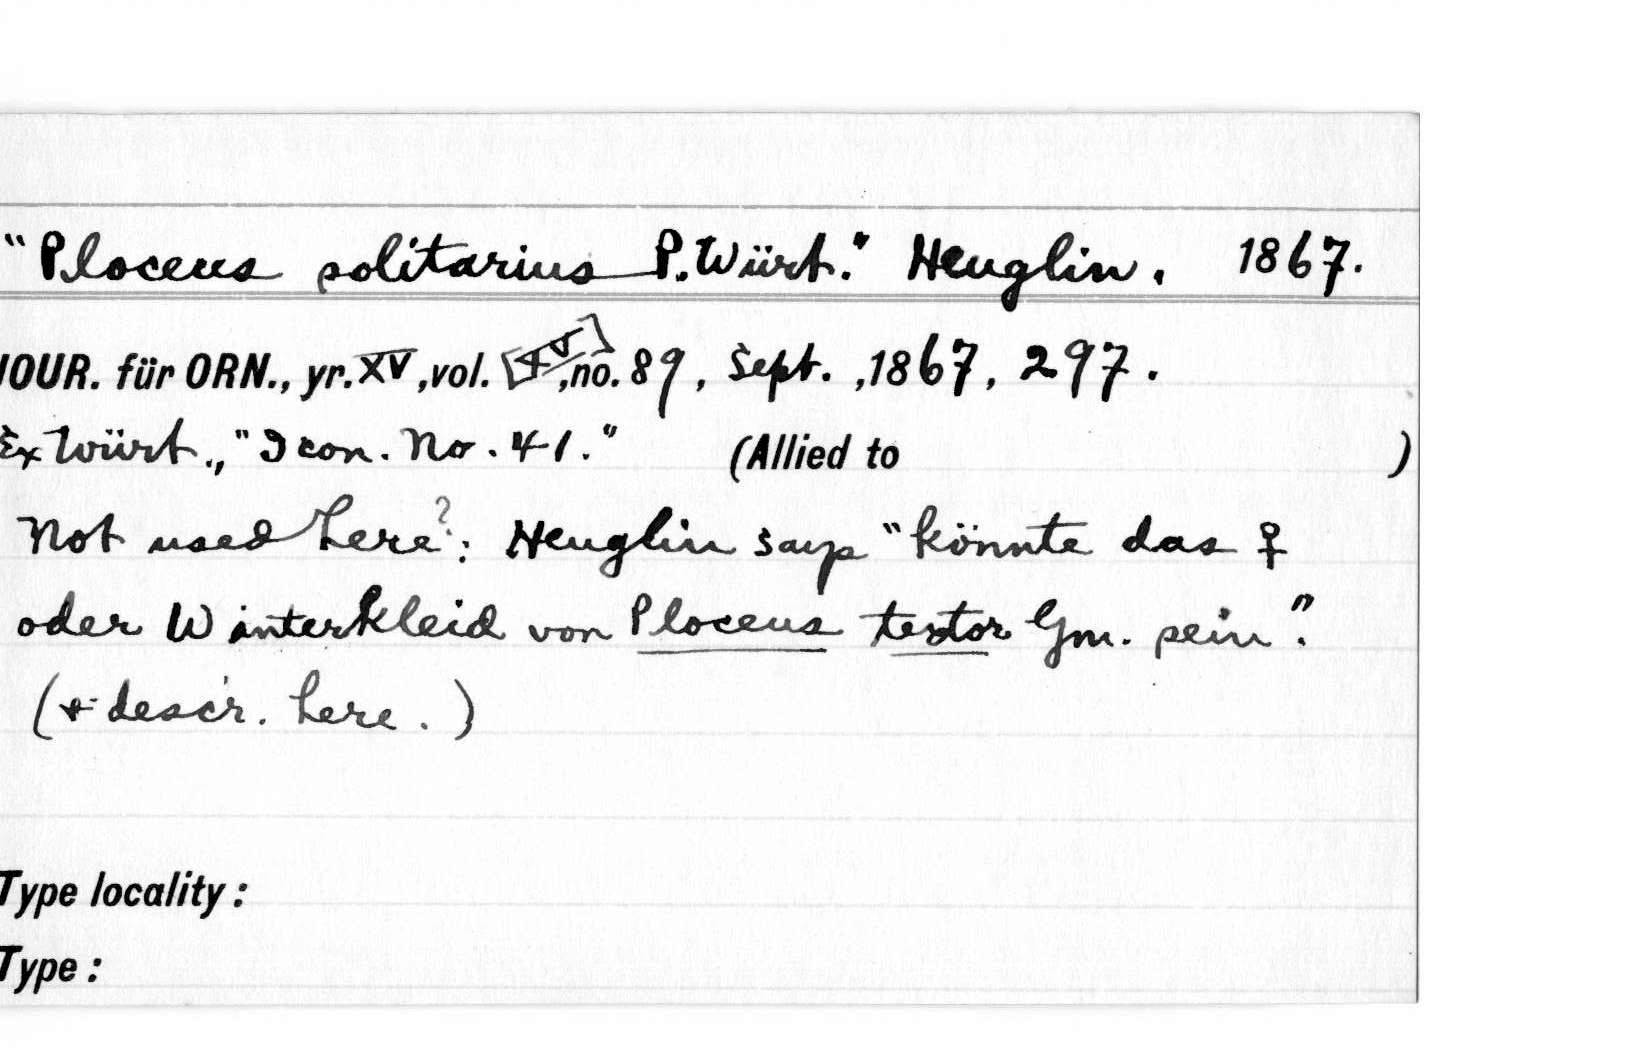 "Ploceus solitarius P.Würt." Heuglin. 1867.
JOUR. für ORN., yr. XV, vol. [XV], no. 89, Sept., 1867, 297.
Ex Würt., "Icon. No. 41." (Allied to )
Not used here?: Heuglin says "könnte das ♀
oder Winterkleid von Ploceus textor Gm. sein".
(+ descr. here.)
Type locality:
Type: